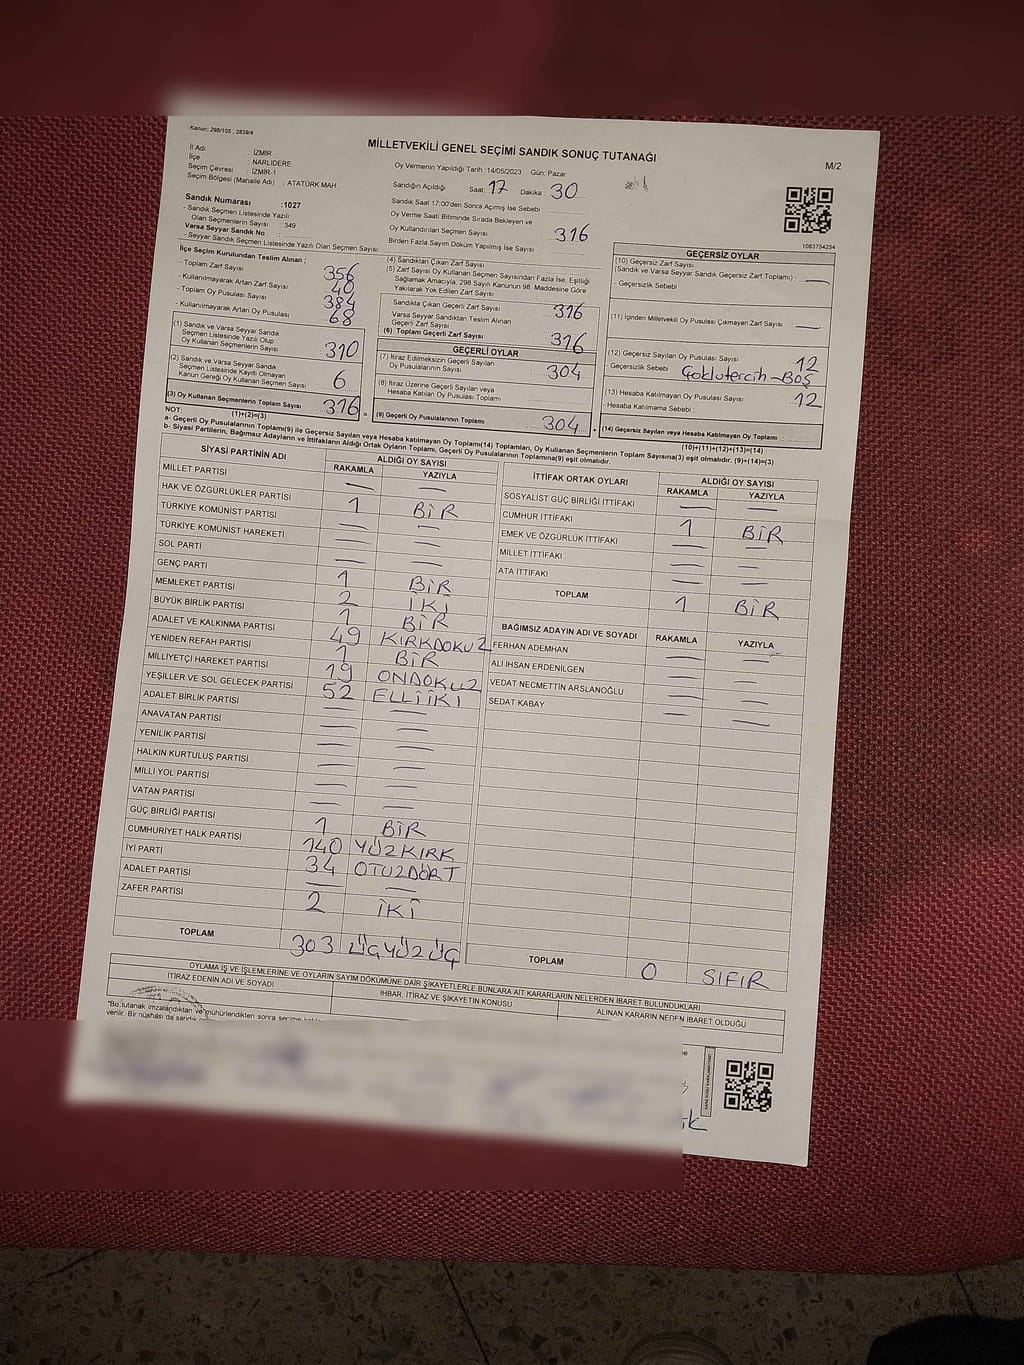 Kanun; 298/105 , 2839/4
MİLLETVEKİLİ GENEL SEÇİMİ SANDIK SONUÇ TUTANAĞI
M/2
İl Adı : İZMİR
İlçe : NARLIDERE
Seçim Çevresi : İZMİR-1
Seçim Bölgesi (Mahalle Adı) : ATATÜRK MAH.
Oy Vermenin Yapıldığı Tarih :14/05/2023 Gün: Pazar
Sandığın Açıldığı Saat: 17 Dakika : 30
Sandık Saat 17:00'den Sonra Açımış İse Sebebi :
Oy Verme Saati Bitiminde Sırada Bekleyen ve
Oy Kullandırılan Seçmen Sayısı 316
Birden Fazla Sayım Döküm Yapılmış İse Sayısı :
1083754254
Sandık Numarası :1027
- Sandık Seçmen Listesinde Yazılı
Olan Seçmenlerin Sayısı : 349
Varsa Seyyar Sandık No :
- Seyyar Sandık Seçmen Listesinde Yazılı Olan Seçmen Sayısı :
İlçe Seçim Kurulundan Teslim Alınan ;
- Toplam Zarf Sayısı 356
- Kullanılmayarak Artan Zarf Sayısı 40
- Toplam Oy Pusulası Sayısı 384
- Kullanılmayarak Artan Oy Pusulası 68
(1) Sandık ve Varsa Seyyar Sandık
Seçmen Listesinde Yazılı Olup
Oy Kullanan Seçmenlerin Sayısı 310
(2) Sandık ve Varsa Seyyar Sandık
Seçmen Listesinde Kayıtlı Olmayan
Kanun Gereği Oy Kullanan Seçmen Sayısı 6
(3) Oy Kullanan Seçmenlerin Toplam Sayısı 316
(4) Sandıktan Çıkan Zarf Sayısı
(5) Zarf Sayısı Oy Kullanan Seçmen Sayısından Fazla İse, Eşitliği
Sağlamak Amacıyla; 298 Sayılı Kanunun 98. Maddesine Göre
Yakılarak Yok Edilen Zarf Sayısı
Sandıkta Çıkan Geçerli Zarf Sayısı 316
Varsa Seyyar Sandıktan Teslim Alınan
Geçerli Zarf Sayısı
(6) Toplam Geçerli Zarf Sayısı 316
GEÇERLİ OYLAR
(7) İtiraz Edilmeksizin Geçerli Sayılan
Oy Pusulalarının Sayısı 304
(8) İtiraz Üzerine Geçerli Sayılan veya
Hesaba Katılan Oy Pusulası Toplamı
(9) Geçerli Oy Pusulalarının Toplamı 304
GEÇERSİZ OYLAR
(10) Geçersiz Zarf Sayısı
(Sandık ve Varsa Seyyar Sandık Geçersiz Zarf Toplamı) : —
- Geçersizlik Sebebi
(11) İçinden Milletvekili Oy Pusulası Çıkmayan Zarf Sayısı : —
(12) Geçersiz Sayılan Oy Pusulası Sayısı 12
- Geçersizlik Sebebi : Çoklutercih-Boş
(13) Hesaba Katılmayan Oy Pusulası Sayısı 12
- Hesaba Katılmama Sebebi :
(14) Geçersiz Sayılan veya Hesaba Katılmayan Oy Toplamı
NOT: (1)+(2)=(3) (10)+(11)+(12)+(13)=(14)
a- Geçerli Oy Pusulalarının Toplamı(9) ile Geçersiz Sayılan veya Hesaba katılmayan Oy Toplamı(14) Toplamları, Oy Kullanan Seçmenlerin Toplam Sayısına(3) eşit olmalıdır. (9)+(14)=(3)
b- Siyasi Partilerin, Bağımsız Adayların ve İttifakların Aldığı Ortak Oyların Toplamı, Geçerli Oy Pusulalarının Toplamına(9) eşit olmalıdır.
SİYASİ PARTİNİN ADI ALDIĞI OY SAYISI
RAKAMLA YAZIYLA
MİLLET PARTİSİ — —
HAK VE ÖZGÜRLÜKLER PARTİSİ — —
TÜRKİYE KOMÜNİST PARTİSİ 1 BİR
TÜRKİYE KOMÜNİST HAREKETİ — —
SOL PARTİ — —
GENÇ PARTİ — —
MEMLEKET PARTİSİ 1 BİR
BÜYÜK BİRLİK PARTİSİ 2 İKİ
ADALET VE KALKINMA PARTİSİ 1 BİR
YENİDEN REFAH PARTİSİ 49 KIRKDOKUZ
MİLLİYETÇİ HAREKET PARTİSİ 1 BİR
YEŞİLLER VE SOL GELECEK PARTİSİ 19 ONDOKUZ
ADALET BİRLİK PARTİSİ 52 ELLİİKİ
ANAVATAN PARTİSİ — —
YENİLİK PARTİSİ — —
HALKIN KURTULUŞ PARTİSİ — —
MİLLİ YOL PARTİSİ — —
VATAN PARTİSİ — —
GÜÇ BİRLİĞİ PARTİSİ — —
CUMHURİYET HALK PARTİSİ 1 BİR
İYİ PARTİ 140 YÜZKIRK
ADALET PARTİSİ 34 OTUZDÖRT
ZAFER PARTİSİ — —
2 İKİ
TOPLAM 303 ÜÇYÜZÜÇ
İTTİFAK ORTAK OYLARI ALDIĞI OY SAYISI
RAKAMLA YAZIYLA
SOSYALİST GÜÇ BİRLİĞİ İTTİFAKI — —
CUMHUR İTTİFAKI 1 BİR
EMEK VE ÖZGÜRLÜK İTTİFAKI — —
MİLLET İTTİFAKI — —
ATA İTTİFAKI — —
TOPLAM 1 BİR
BAĞIMSIZ ADAYIN ADI VE SOYADI RAKAMLA YAZIYLA
FERHAN ADEMHAN — —
ALİ İHSAN ERDENİLGEN — —
VEDAT NECMETTİN ARSLANOĞLU — —
SEDAT KABAY — —
TOPLAM 0 SIFIR
OYLAMA İŞ VE İŞLEMLERİNE VE OYLARIN SAYIM DÖKÜMÜNE DAİR ŞİKAYETLERLE BUNLARA AİT KARARLARIN NELERDEN İBARET BULUNDUKLARI
İTİRAZ EDENİN ADI VE SOYADI İHBAR, İTİRAZ VE ŞİKAYETİN KONUSU ALINAN KARARIN NEDEN İBARET OLDUĞU
"Bu tutanak imzalandıktan ve mühürlendikten sonra
verilir. Bir nüshası da sandık